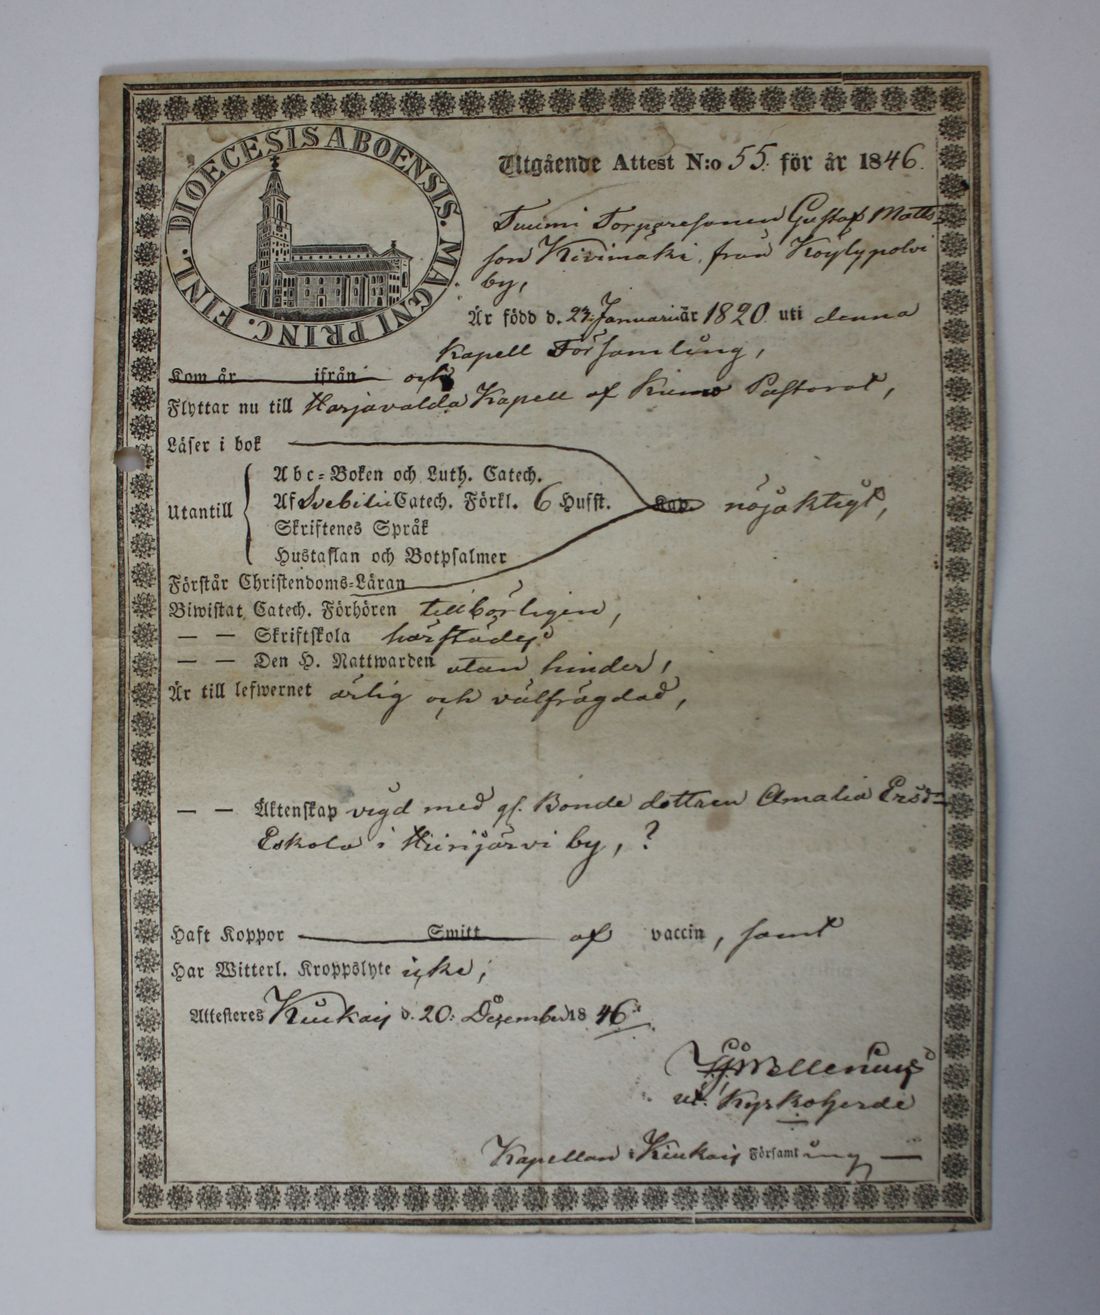 DIOECESIS ABOENSIS. MAGNI PRINC. FINL.
Utgående Attest N:o 55. för år 1846.
Torparesonen Gustaf Matts-
son Kivimäki, från Köylypolvi
by,
Är född d. 23 Januarii år 1820 uti denna
Kapell Församling,
Kom år ifrån och
Flyttar nu till Harjavalda Kapell af Kumo Pastorat,
Läser i bok
Utantill
Abc-Boken och Luth. Catech.
Af Svebilii Catech. Förkl. 6 Hufst. Kap. nöjaktigt,
Skriftenes Språk
Hustaflan och Botpsalmer
Förstår Christendoms-Läran
Biwistat Catech. Förhören tillbörligen,
— — Skriftskola härstädes
— — Den H. Nattwarden utan hinder,
Är till lefwernet ärlig och välfrägdad,
— — Äktenskap vigd med Bonde dottren Amalia Ersd-
Eskola i Hiirijärvi by, ?
Haft Koppor Smitt af vaccin, samt
Har Witterl. Kroppslyte icke,
Attesteres Kiukais d. 20: December 1846.
Wellenius
vt. Kyrkoherde
Kapellan i Kiukais Församling —